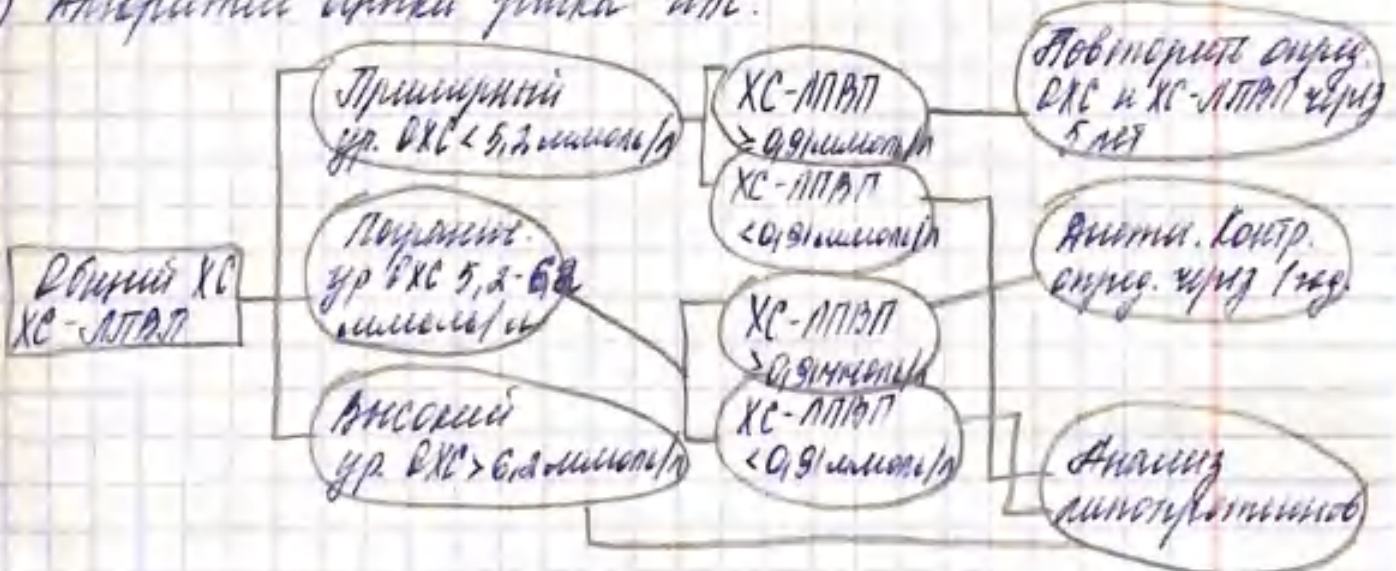 Алгоритм оценки риска
Общий ХС
ХС-ЛПВП
Примерный
ур. ОХС < 5,2 ммоль/л
Погранич.
ур ОХС 5,2-6,2
ммоль/л
Высокий
ур. ОХС > 6,2 ммоль/л
ХС-ЛПВП
≥ 0,91 ммоль/л
ХС-ЛПВП
< 0,91 ммоль/л
ХС-ЛПВП
> 0,91 ммоль/л
ХС-ЛПВП
< 0,91 ммоль/л
Повторить опред.
ОХС и ХС-ЛПВП через
5 лет
Контр.
опред. через 1 год.
Анализ
липопротеинов